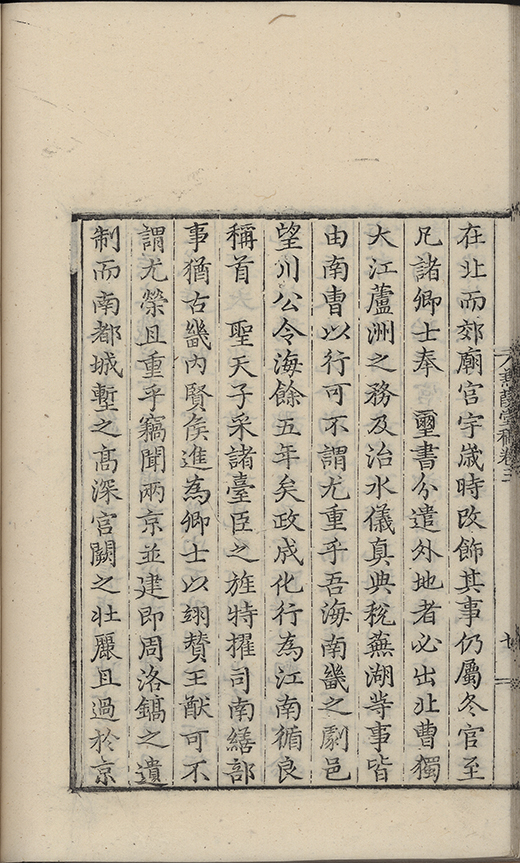 在北而郊廟宮宇歲時改飾其事仍屬冬官至
凡諸卿士奉　璽書分遣外地者必出北曹獨
大江蘆洲之務及治水儀真典稅蕪湖等事皆
由南曹以行可不謂尤重乎吾海南畿之劇邑
望川公令海餘五年矣政成化行為江南循良
稱首　聖天子采諸臺臣之旌特擢司南繕部
事猶古畿內賢矦進為卿士以翊贊王猷可不
謂尤榮且重乎竊聞兩京並建即周洛鎬之遺
制而南都城塹之髙深宮闕之壯麗且過於京